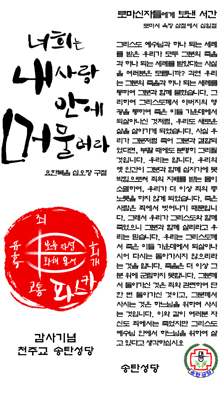 너희는
내 사랑
안에
머물러라
요한복음 십오장 구절
죄
유혹
회개
고통
파스카
감사기념
천주교 송탄성당
로마신자들에게 보낸 서간
로마서 육장 삼절에서 십일절
그리스도 예수님과 하나 되는 세례
를 받은 우리가 모두 그분의 죽음
과 하나 되는 세례를 받았다는 사실
을 여러분은 모릅니까? 과연 우리
는 그분의 죽음과 하나 되는 세례를
통하여 그분과 함께 묻혔습니다. 그
리하여 그리스도께서 아버지의 영
광을 통하여 죽은 이들 가운데에서
되살아나신 것처럼, 우리도 새로운
삶을 살아가게 되었습니다. 사실 우
리가 그분처럼 죽어 그분과 결합되
었다면, 부활 때에도 분명히 그리될
것입니다. 우리는 압니다. 우리의
옛 인간이 그분과 함께 십자가에 못
박힘으로써 죄의 지배를 받는 몸이
소멸하여, 우리가 더 이상 죄의 종
노릇을 하지 않게 되었습니다. 죽은
사람은 죄에서 벗어나기 때문입니
다. 그래서 우리가 그리스도와 함께
죽었으니 그분과 함께 살리라고 우
리는 믿습니다. 우리는 그리스도께
서 죽은 이들 가운데에서 되살아나
시어 다시는 돌아가시지 않으리라
는 것을 압니다. 죽음은 더 이상 그
분 위에 군림하지 못합니다. 그분께
서 돌아가신 것은 죄와 관련하여 단
한 번 돌아가신 것이고, 그분께서
사시는 것은 하느님을 위하여 사시
는 것입니다. 이와 같이 여러분 자
신도 죄에서는 죽었지만 그리스도
예수님 안에서 하느님을 위하여 살
고 있다고 생각하십시오
송탄성당